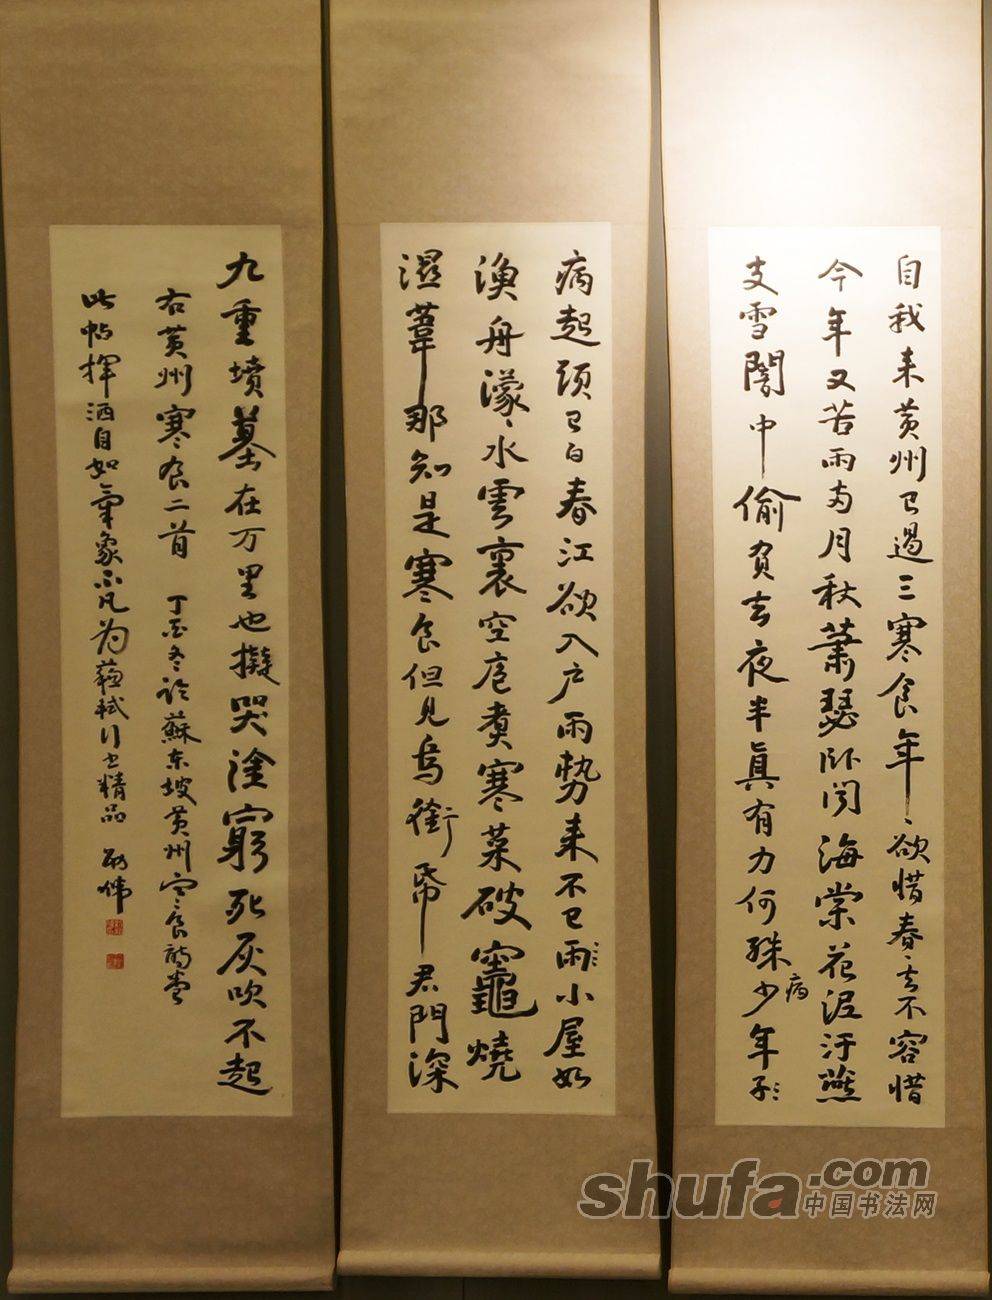 自我来黄州已過三寒食年〻欲惜春〻去不容惜
今年又苦雨两月秋蕭瑟卧闻海棠花泥汙燕
支雪闇中偷負去夜半真有力何殊少年子〻
病
病起頭已白春江欲入户雨勢来不已雨〻小屋如
漁舟濛〻水雲裏空庖煮寒菜破竈燒
濕葦那知是寒食但見烏銜帋君門深
九重墳墓在万里也擬哭塗窮死灰吹不起
右黄州寒食二首 丁酉冬临蘇东坡黄州寒食詩卷
此帖揮洒自如氣象不凡为蘇軾行书精品
shufa.com
中国书法网